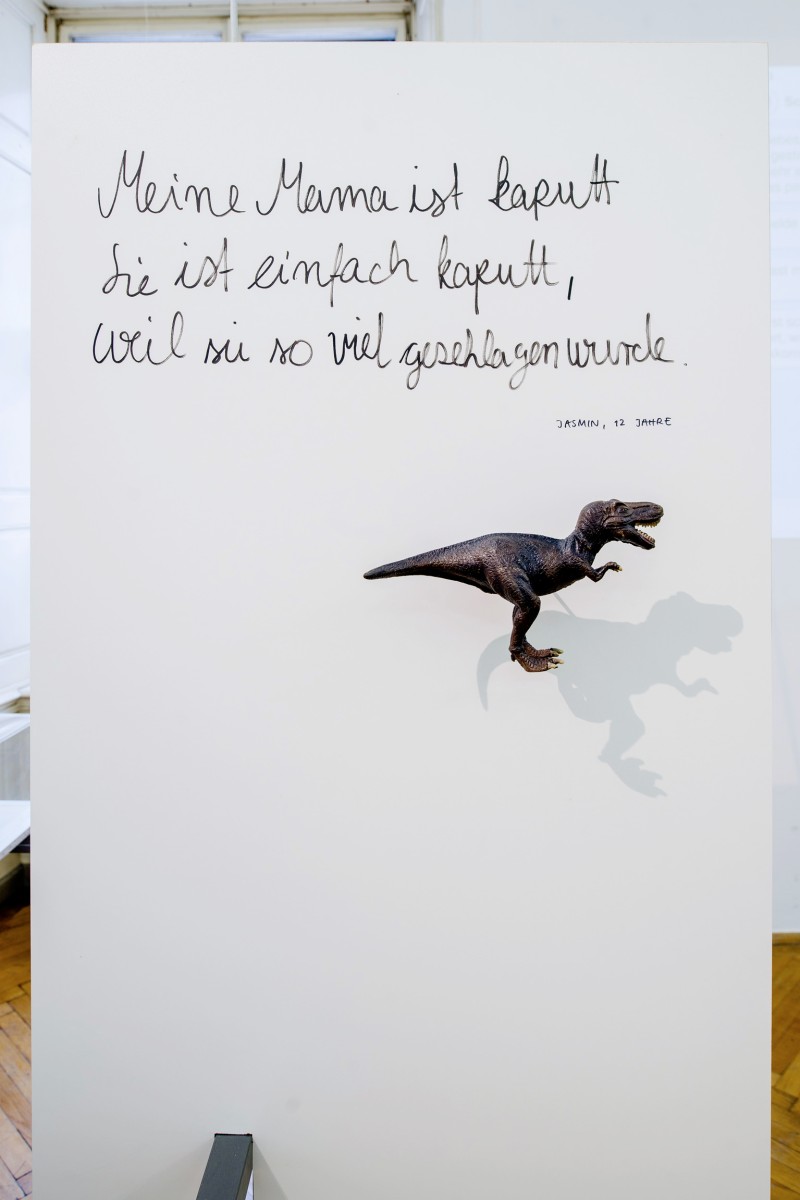 Meine Mama ist kaputt
Sie ist einfach kaputt,
weil sie so viel geschlagen wurde.
JASMIN, 12 JAHRE